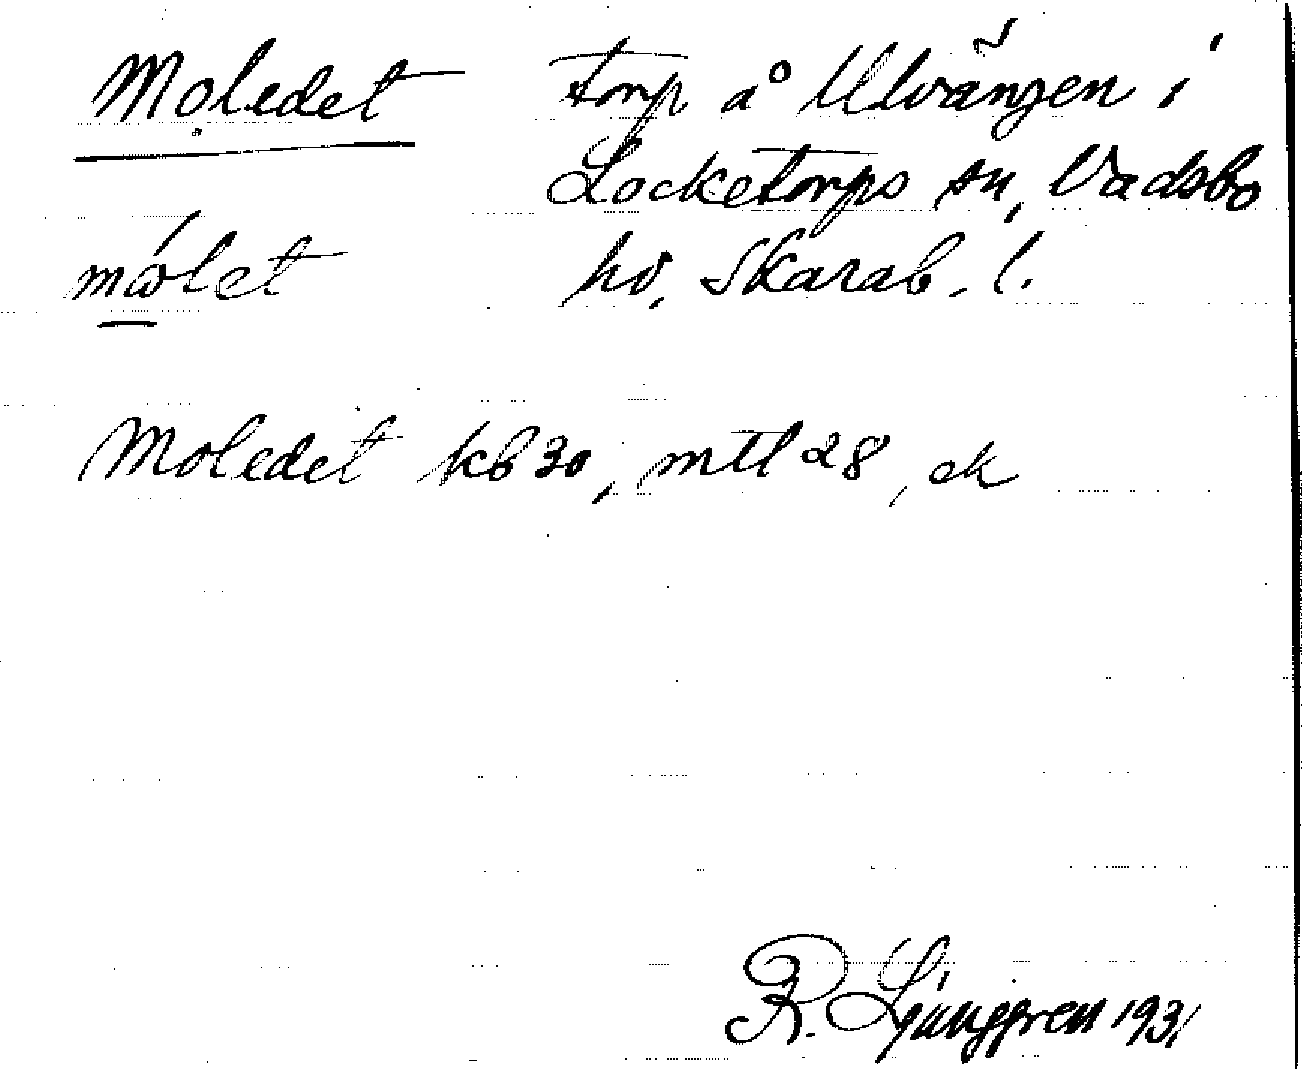 Moledet torp å Ulvängen i
Locketorps sn, Vadsbo
mólet hd, Skarab. l.
Moledet kb 30, mtl 28, ek
R. Ljunggren 1931